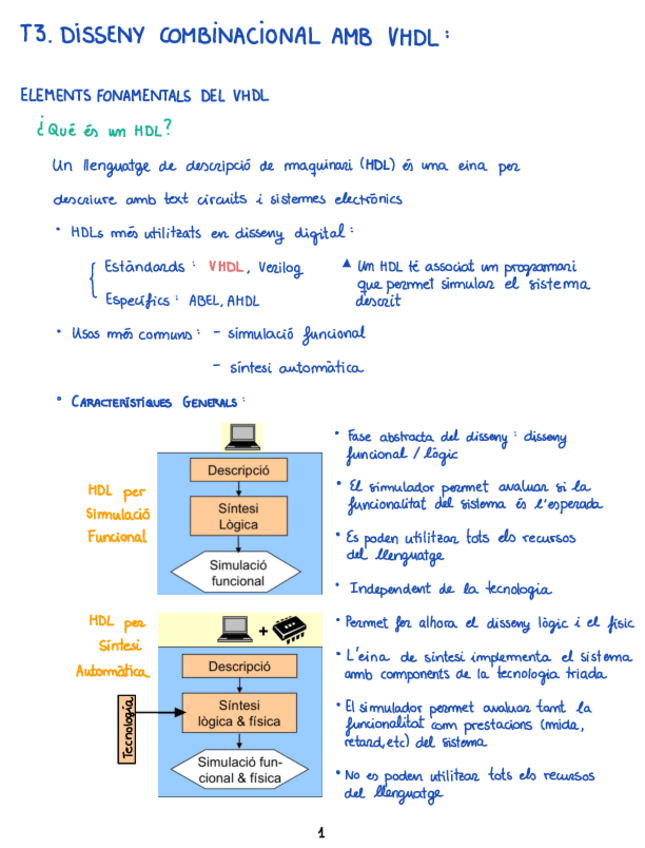 T3. DISSENY COMBINACIONAL AMB VHDL:
ELEMENTS FONAMENTALS DEL VHDL
¿Qué és un HDL?
Un llenguatge de descripció de maquinari (HDL) és una eina per
descriure amb text circuits i sistemes electrònics
• HDLs més utilitzats en disseny digital:
Estàndards: VHDL, Verilog
Específics: ABEL, AHDL
▲ Un HDL té associat un programari
que permet simular el sistema
descrit
• Usos més comuns: - simulació funcional
- síntesi automàtica
• CARACTERÍSTIQUES GENERALS:
HDL per
Simulació
Funcional
Descripció
Síntesi
Lògica
Simulació
funcional
• Fase abstracta del disseny: disseny
funcional / lògic
• El simulador permet avaluar si la
funcionalitat del sistema és l'esperada
• Es poden utilitzar tots els recursos
del llenguatge
• Independent de la tecnologia
HDL per
Síntesi
Automàtica
Tecnologia
+
Descripció
Síntesi
lògica & física
Simulació fun-
cional & física
• Permet fer alhora el disseny lògic i el físic
• L'eina de síntesi implementa el sistema
amb components de la tecnologia triada
• El simulador permet avaluar tant la
funcionalitat com prestacions (mida,
retard, etc) del sistema
• No es poden utilitzar tots els recursos
del llenguatge
1